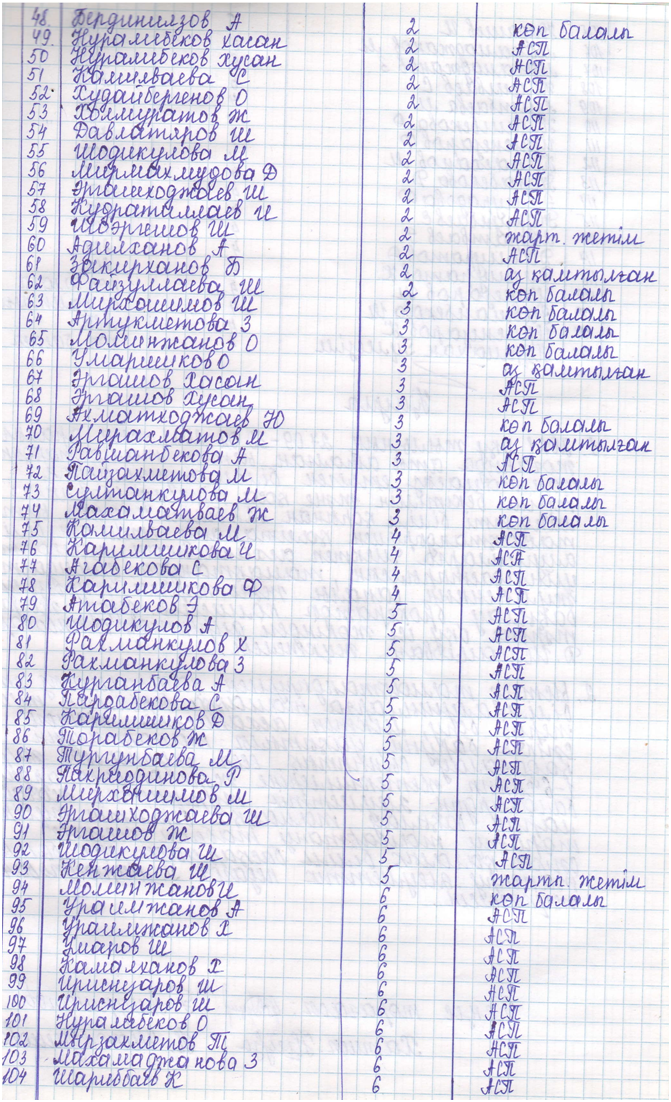 48. Бердиниязов А 2 көп балалы
49. Нуралибеков Хасан 2 АСП
50 Нуралибеков Хусан 2 АСП
51 Камилваева С 2 АСП
52. Худайбергенов О 2 АСП
53 Холмуратов Ж 2 АСП
54 Давлатяров Ш 2 АСП
55 Шодикулова М 2 АСП
56 Мирмахмудова Д 2 АСП
57 Эргашходжаев Ш 2 АСП
58 Кудраталлаев И 2 АСП
59 Шоэргешов Ш 2 жарт. жетім
60 Адилханов А 2 АСП
61 Закирханов Б 2 аз қамтылған
62 Файзуллаева Ш 2 көп балалы
63 Мирхошимов Ш 3 көп балалы
64 Артукметова З 3 көп балалы
65 Моминжанов О 3 көп балалы
66 Умаришков О 3 аз қамтылған
67 Эргашов Хасан 3 АСП
68 Эргашов Хусан 3 АСП
69 Ахматходжаев Ю 3 көп балалы
70 Мирахматов М 3 аз қамтылған
71 Равшанбекова А 3 АСП
72 Пайзахметова М 3 көп балалы
73 Султанкулова М 3 көп балалы
74 Махаматваев Ж 3 көп балалы
75 Камилваева М 4 АСП
76 Каримшикова Ч 4 АСП
77 Агабекова С 4 АСП
78 Каримшикова Ф 4 АСП
79 Атабеков Э 5 АСП
80 Шодикулов А 5 АСП
81 Рахманкулов Х 5 АСП
82 Рахманкулова З 5 АСП
83 Курганбаева А 5 АСП
84 Пардабекова С 5 АСП
85 Каримшиков Д 5 АСП
86 Торабеков Ж 5 АСП
87 Тургунбаева М 5 АСП
88 Пахриодинова Р 5 АСП
89 Мирхашимов М 5 АСП
90 Эргашходжаева Ш 5 АСП
91 Эргашов Ж 5 АСП
92 Шодикулова Ш 5 АСП
93 Кенжаева Ш 5 жарты. жетім
94 Моминжанов И 6 көп балалы
95 Ураимжанов А 6 АСП
96 Ураимжанов Х 6 АСП
97 Хиаров Ш 6 АСП
98 Камалханов Х 6 АСП
99 Ирисназаров Ш 6 АСП
100 Ирисназаров Ш 6 АСП
101 Нуралибеков О 6 АСП
102 Мирзахметов Т 6 АСП
103 Махамаджанова З 6 АСП
104 Шариббаев К 6 АСП